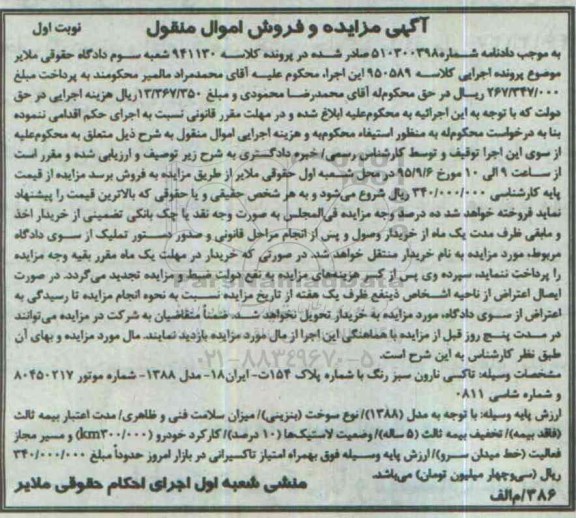 آگهی مزایده و فروش اموال منقول
نوبت اول
به موجب دادنامه شماره ۵۱۰۳۰۰۳۹۸ صادر شده در پرونده کلاسه ۹۴۱۱۳۰ شعبه سوم دادگاه حقوقی ملایر
موضوع پرونده اجرایی کلاسه ۹۵۰۵۸۹ این اجراء محکوم علیه آقای محمدمراد مالمیر محکومند به پرداخت مبلغ
۲۶۷/۳۴۷/۰۰۰ ریال در حق محکوم‌له آقای محمدرضا محمودی و مبلغ ۱۳/۳۶۷/۳۵۰ریال هزینه اجرایی در حق
دولت که با توجه به این اجرائیه به محکوم‌علیه ابلاغ شده و در مهلت مقرر قانونی نسبت به اجرای حکم اقدامی ننموده
بنا به درخواست محکوم‌له به منظور استیفاء محکوم‌به و هزینه اجرایی اموال منقول به شرح ذیل متعلق به محکوم‌علیه
از سوی این اجرا توقیف و توسط کارشناس رسمی/ خبره دادگستری به شرح زیر توصیف و ارزیابی شده و مقرر است
از ساعت ۹ الی ۱۰ مورخ ۹۵/۹/۶ در محل شعبه اول حقوقی ملایر از طریق مزایده به فروش برسد مزایده از قیمت
پایه کارشناسی ۳۴۰/۰۰۰/۰۰۰ ریال شروع می‌شود و به هر شخص حقیقی و یا حقوقی که بالاترین قیمت را پیشنهاد
نماید فروخته خواهد شد ده درصد وجه مزایده فی‌المجلس به صورت وجه نقد یا چک بانکی تضمینی از خریدار اخذ
و مابقی ظرف مدت یک ماه از خریدار وصول و پس از انجام مراحل قانونی و صدور دستور تملیک از سوی دادگاه
مربوط، مورد مزایده به نام خریدار منتقل خواهد شد. در صورتی که خریدار در مهلت یک ماه مقرر بقیه وجه مزایده
را پرداخت ننماید، سپرده وی پس از کسر هزینه‌های مزایده به نفع دولت ضبط و مزایده تجدید می‌گردد. در صورت
ایصال اعتراض از ناحیه اشخاص ذینفع ظرف یک هفته از تاریخ مزایده نسبت به نحوه انجام مزایده تا رسیدگی به
اعتراض از سوی دادگاه، مورد مزایده به خریدار تحویل نخواهد شد. ضمناً متقاضیان به شرکت در مزایده می‌توانند
در مدت پنج روز قبل از مزایده با هماهنگی این اجرا از مال مورد مزایده بازدید نمایند. مال مورد مزایده و بهای آن
طبق نظر کارشناس به این شرح است.
۰۲۱-۸۸۳۴۹۶۷۰-۵
مشخصات وسیله: تاکسی نارون سبز رنگ با شماره پلاک ۱۵۴ت- ایران۱۸- مدل ۱۳۸۸- شماره موتور ۸۰۴۵۰۲۱۷
و شماره شاسی ۰۸۱۱
ارزش پایه وسیله: با توجه به مدل (۱۳۸۸)/ نوع سوخت (بنزینی)/ میزان سلامت فنی و ظاهری/ مدت اعتبار بیمه ثالث
(فاقد بیمه)/ تخفیف بیمه ثالث (۵ ساله)/ وضعیت لاستیک‌ها (۱۰ درصد)/ کارکرد خودرو (۳۰۰/۰۰۰km) و مسیر مجاز
فعالیت (خط میدان سرو)/ ارزش پایه وسیله فوق بهمراه امتیاز تاکسیرانی در بازار امروز حدوداً مبلغ ۳۴۰/۰۰۰/۰۰۰
ریال (سی‌وچهار میلیون تومان) می‌باشد.
منشی شعبه اول اجرای احکام حقوقی ملایر
۳۸۶/م‌الف